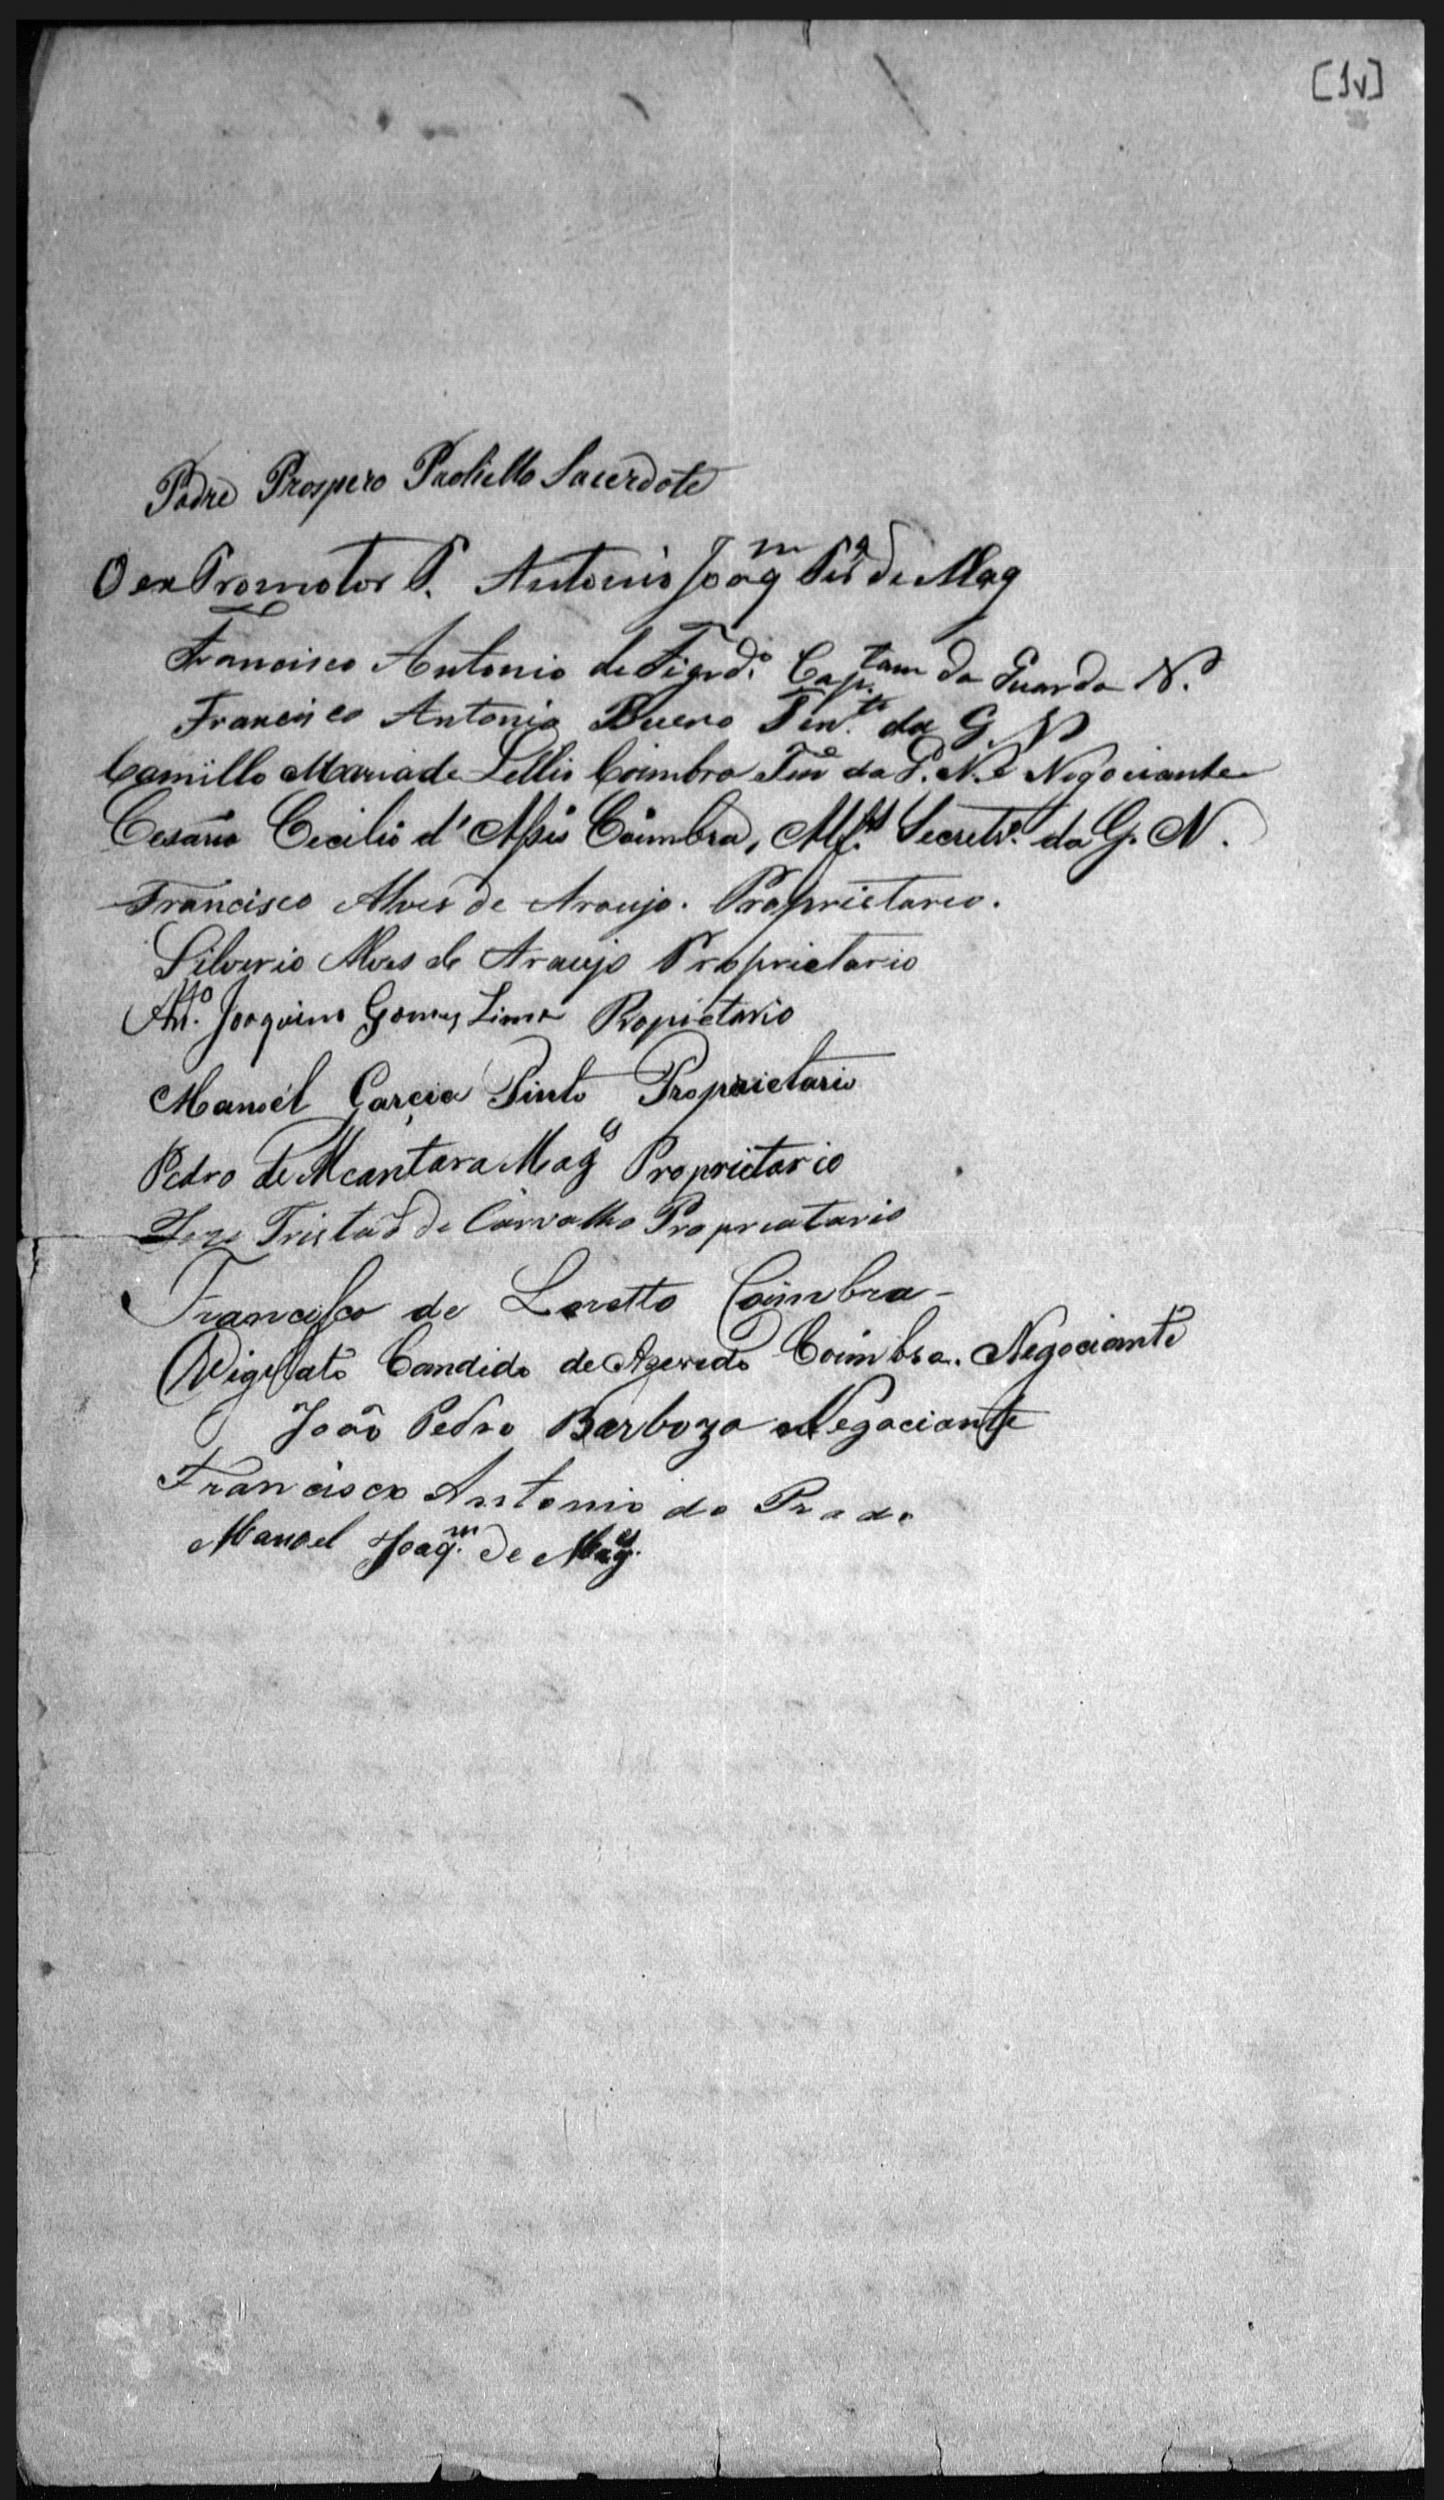 [1v]
Padre Prospero Paoliello Sacerdote
O ex Promotor P. Antonio Joaqm de Mag
Francisco Antonio de Figrdo. Cap.tam da Guarda N.
Francisco Antonio Bueno Ten.te da G. N
Camillo Maria de Lellis Coimbra Tene da G. N. e Negociante
Cesario Cecilio d'Assis Coimbra, Alf.es Secretr.o da G. N.
Francisco Alves de Araujo. Proprietareo.
Silverio Alves de Araujo Proprietario
Anto. Joaquim Gomes Lima Ropietario
Manoel Garcia Pinto Proprietario
Pedro de Alcantara Mages Proprietario
Joze Tristaõ de Carvalho Propreatario
Francisco de Loretto Coimbra -
Vigilato Candido de Azevedo Coimbra. Negociante
João Pedro Barboza Negociante
Francisco Antonio do Prado
Manoel Joaqm. de Mages.